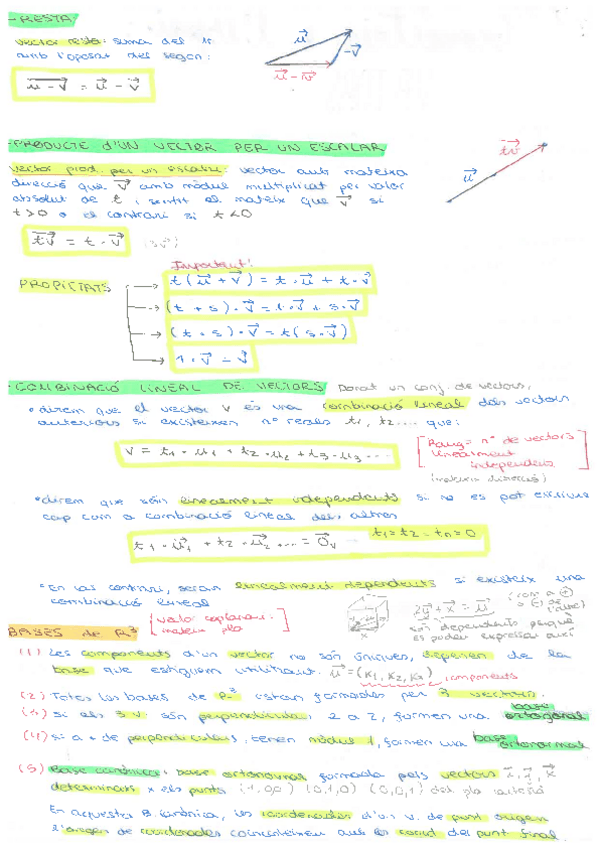 - RESTA
vector resta: suma del 1r
amb l'oposat del segon:
u - v = u - v
u
-v
u - v
- PRODUCTE d'UN VECTOR PER UN ESCALAR
vector prod. per un escalar: vector amb mateixa
direcció que v amb mòdul multiplicat per valor
absolut de t, sentit el mateix que v si
t>0 o el contrari si t<0
tv = t · v
u
tv
Important!
PROPIETATS
t(u + v) = t · u + t · v
(t + s) · v = t · v + s · v
(t · s) · v = t(s · v)
1 · v = v
- COMBINACIÓ LINEAL DE VECTORS Donat un conj. de vectors,
• direm que el vector v és una combinació lineal dels vectors
anteriors si existeixen nº reals t1, t2... que:
v = t1 · u1 + t2 · u2 + t3 · u3 ...
[Rang = nº de vectors
linealment
independents
(mateixa direcció)
• direm que són linealment independents si no es pot escriure
cap com a combinació lineal dels altres
t1 · u1 + t2 · u2 ... = 0v
t1 = t2 = tn = 0
• En cas contrari, seran linealment dependents si existeix una
combinació lineal
[valor coplanari:
mateix pla]
2y + x = u
són dependents perquè
es poden expressar així
BASES de R³
(1) Les components d'un vector no són úniques, depenen de la
base que estiguem utilitzant. u = (k1, k2, k3) components
(2) Totes les bases de R³ estan formades per 3 vectors.
(3) si els 3 v. són perpendiculars 2 a 2, formen una base
ortogonal
(4) si a + de perpendiculars, tenen mòdul 1, formen una base
ortonormal
(5) Base canònica: base ortonormal formada pels vectors i, j, k
determinats x els punts (1,0,0) (0,1,0) (0,0,1) del pla cartesià
En aquesta B. canònica, les coordenades d'un v. de punt origen
l'origen de coordenades coincideixen amb les coord. del punt final